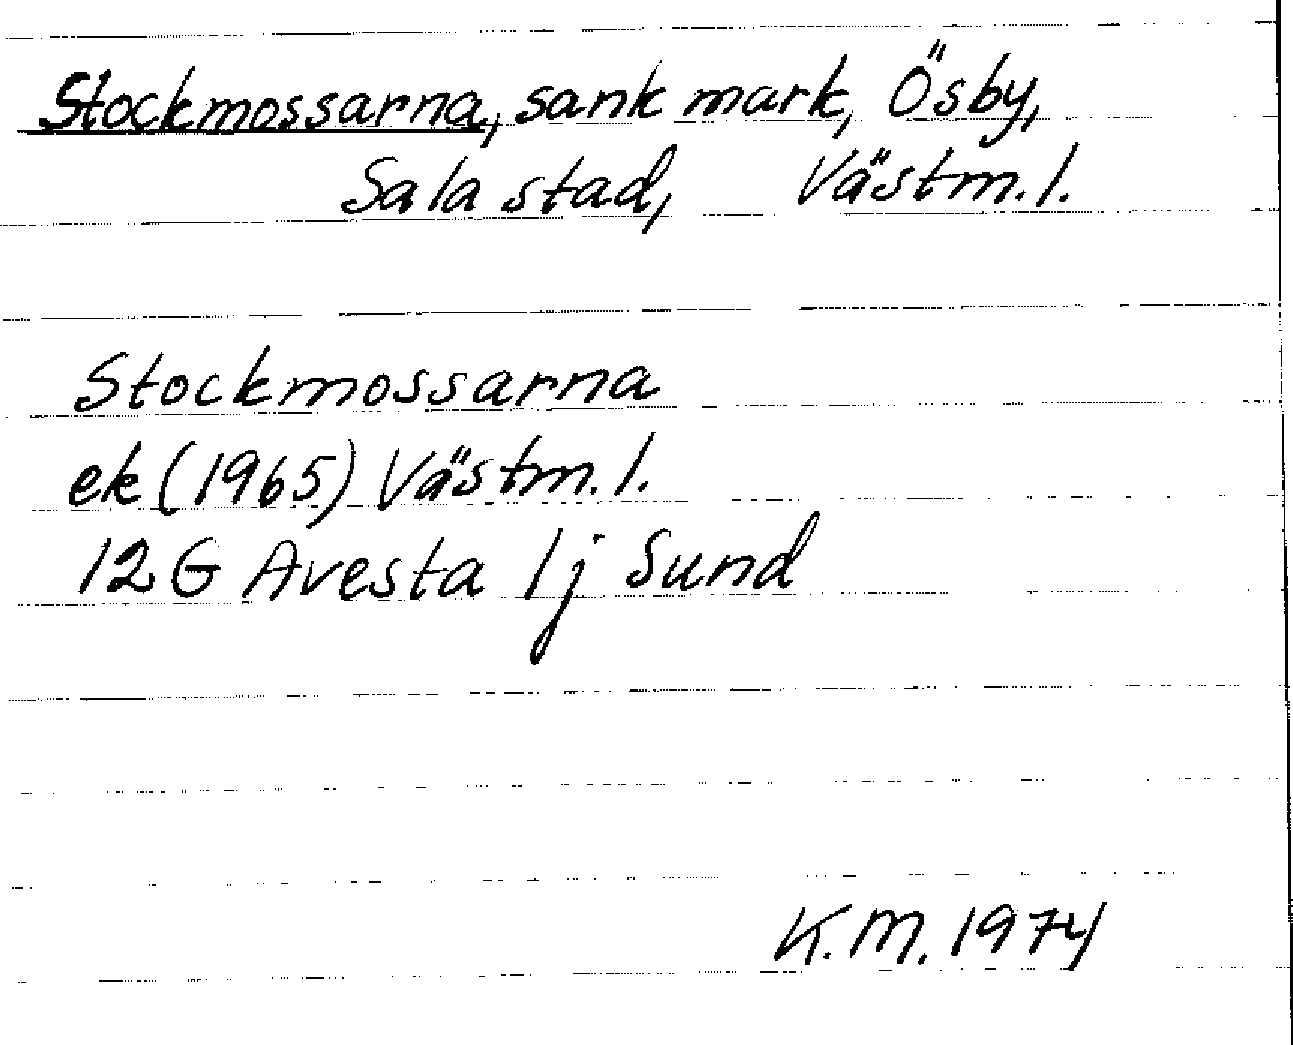 Stockmossarna, sank mark, Ösby,
Sala stad, Västm.l.
Stockmossarna
ek (1965) Västm.l.
12 G Avesta 1j Sund
K.M. 1974